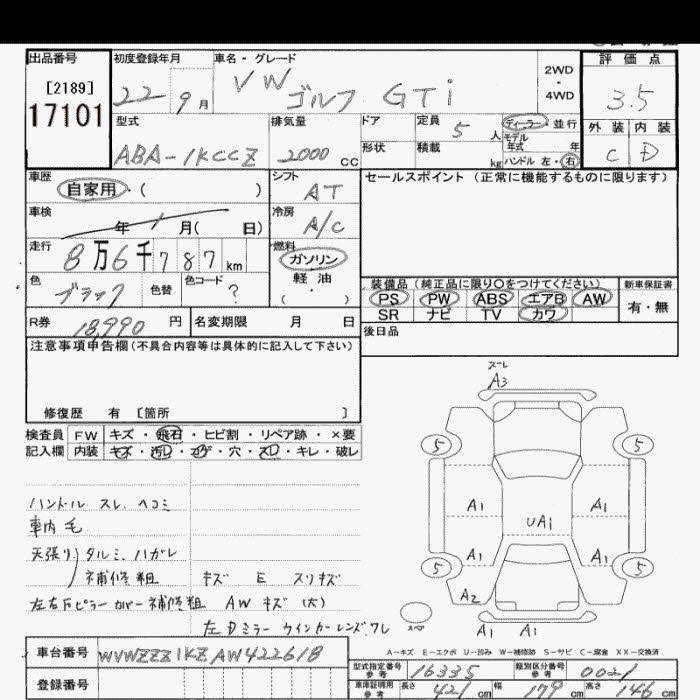 出品番号 初度登録年月 車名・グレード 評価点
[2189]
17101
22 9月 VW ゴルフ GTi 2WD・4WD 3.5
型式 排気量 ドア 定員 5 人 ディーラー 並行 外装 内装
ABA-1KCCZ 2000 cc 形状 積載 kg モデル年式 年 C D
ハンドル 左・右
車歴 シフト セールスポイント (正常に機能するものに限ります)
自家用・( ) AT
車検 冷房
年 月( 日) A/C
走行 燃料
8万6千787km ガソリン
色 色替 色コード 軽油
ブラック ? ( ・ )
装備品(純正品に限り○をつけてください) 新車保証書
PS PW ABS エアB AW 有・無
SR ナビ TV カワ
R券 18,990 円 名変期限 月 日 後日品
注意事項申告欄(不具合内容等は具体的に記入して下さい)
修復歴 有 [箇所 ]
検査員 FW キズ・飛石・ヒビ割・リペア跡・×要
記入欄 内装 キズ・汚レ・コゲ・穴・スレ・キレ・破レ
ズレ
A3
5 5
A1 A1
UA1
A1 A1
5 5
A2
A1 A1
ハンドル スレ ヘコミ
車内 毛
天張り タルミ、ハガレ
補修粗 キズ E スリキズ
左右下ピラーカバー補修粗 AW キズ (大)
左Dミラー ウインカーレンズワレ
A-キズ E-エクボ U-凹み W-補修跡 S-サビ C-腐食 XX-交換済
車台番号 WVWZZZ1KZAW422618
登録番号
型式指定番号 参考 16335 類別区分番号 参考 0021
車庫証明用 参考 長さ 421 cm 幅 179 cm 高さ 146 cm